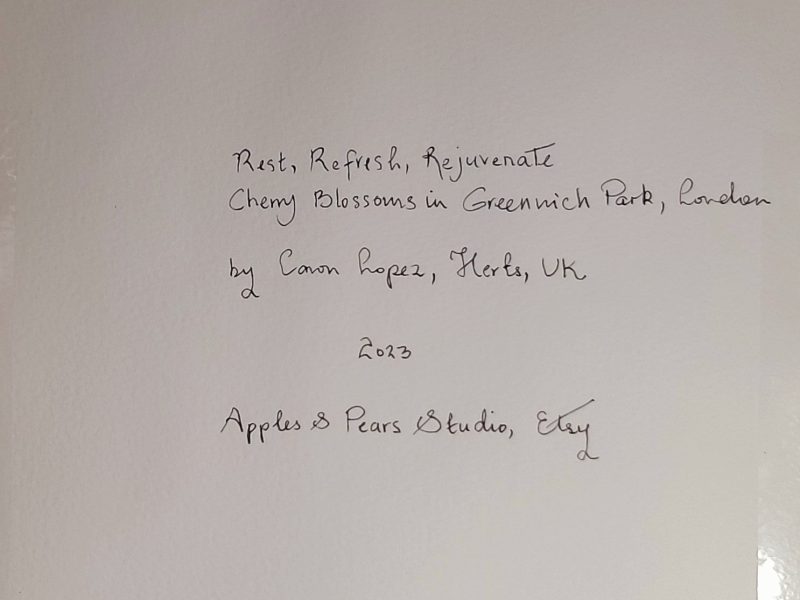 Rest, Refresh, Rejuvenate
Cherry Blossoms in Greenwich Park, London
by Caron Lopez, Herts, UK
2023
Apples & Pears Studio, Etsy